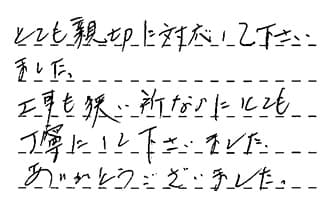 とても親切に対応して下さい
ました。
工事も狭い所なのにとても
丁寧にして下さいました。
ありがとうございました。